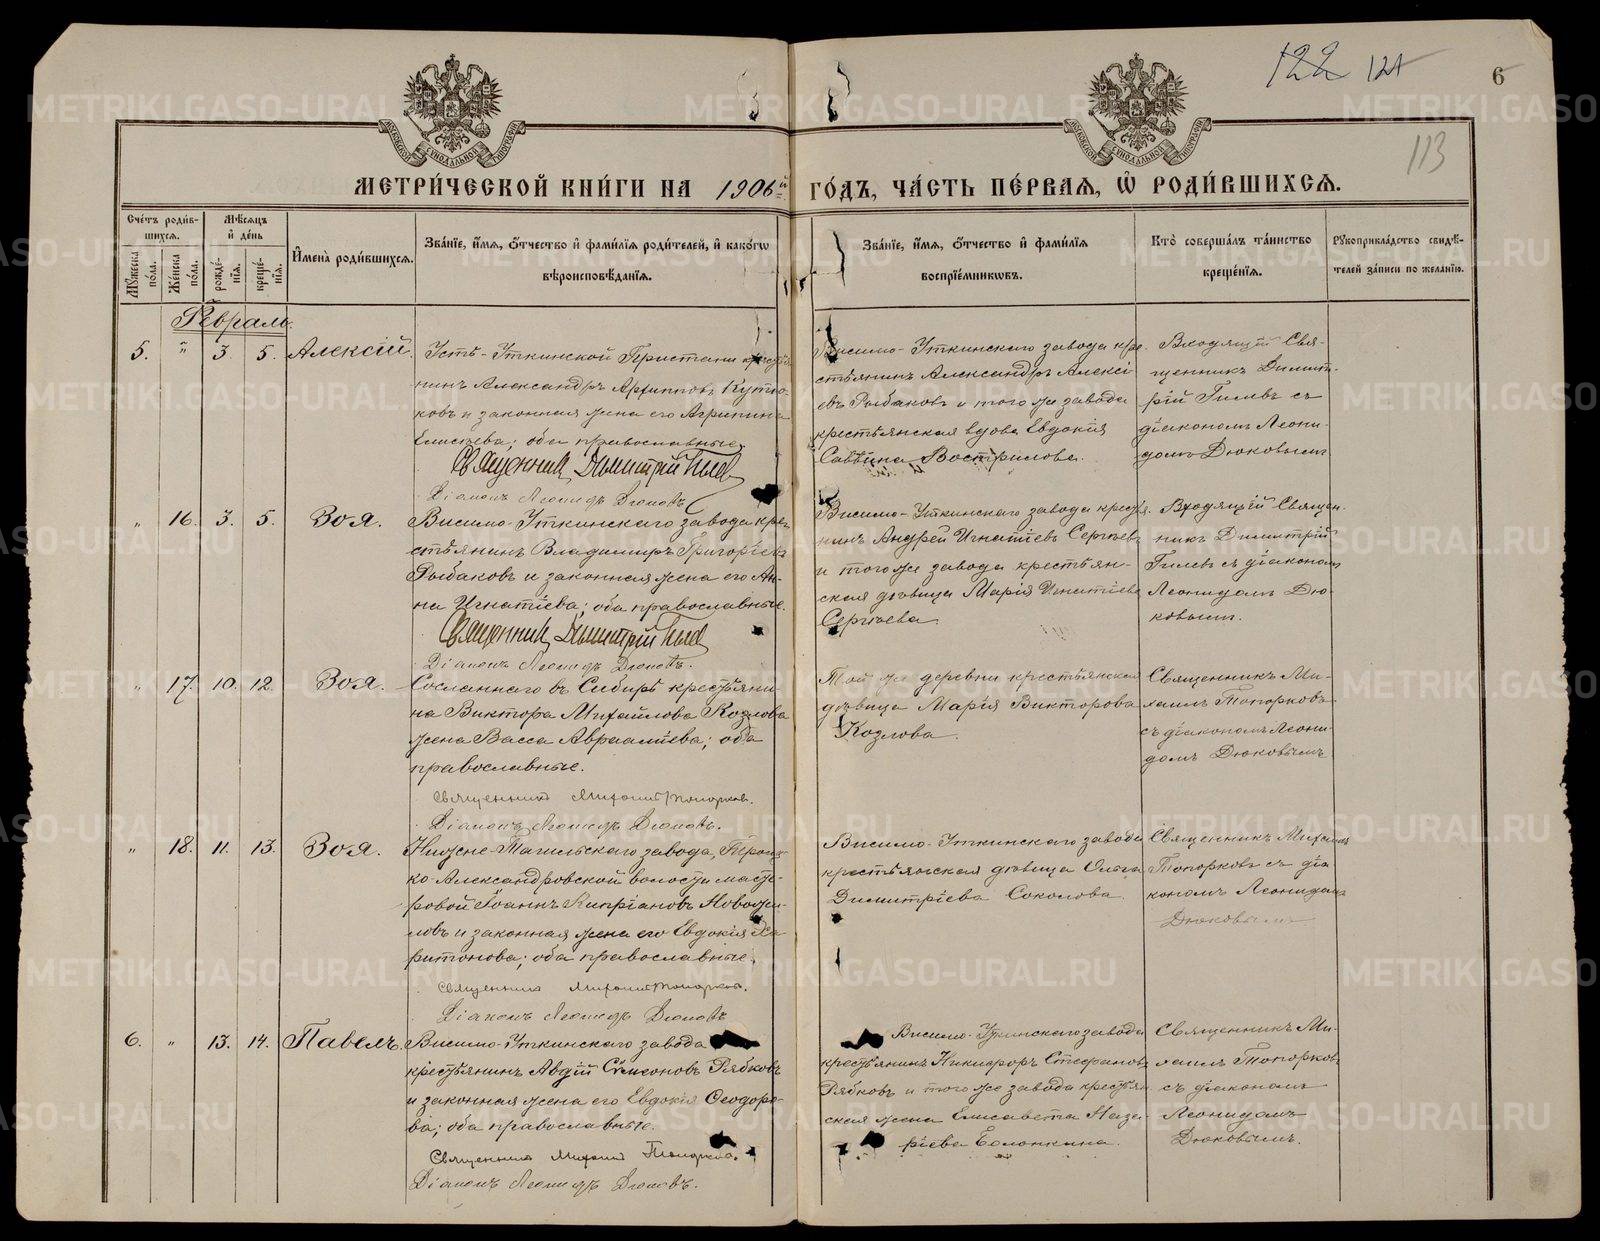 122 121
6
113
МОСКОВСКОЙ СУНОДАЛЬНОЙ ТИПОГРАФІИ
МОСКОВСКОЙ СУНОДАЛЬНОЙ ТИПОГРАФІИ
МЕТРИ́ЧЕСКОЙ КНИ́ГИ НА 1906й ГО́ДЪ, ЧА́СТЬ ПЕ́РВАЯ, Ѡ҆ РОДИ́ВШИХСѦ.
Сче́тъ роди́в-
шихся.
Мѣ́сяцъ
и҆ де́нь
Мꙋ́жеска
по́ла.
Же́нска
по́ла.
рожде́-
нїя.
креще́-
нїя.
И҆мена̀ роди́вшихся.
Зва́нїе, и҆́мя, ѻ҆́тчество и҆ фами́лїя роди́телей, и҆ како́гѡ
вѣроисповѣ́данїя.
Зва́нїе, и҆́мя, ѻ҆́тчество и҆ фами́лїя
воспрїе́мникѡвъ.
Кто̀ соверша́лъ та́инство
креще́нїя.
Рꙋкоприкла́дство свидѣ́-
телей за́писи по жела́нїю.
Февраль.
5. " 3. 5. Алексій.
Усть-Уткинской Пристани крестья-
нинъ Александръ Архиповъ Кутю-
ковъ и законная жена его Агрипина
Елисѣева; оба православные.
Священникъ Димитрій Гилев
Діаконъ Леонидъ Дюковъ
Висимо-Уткинскаго завода кре-
стьянинъ Александръ Алексі-
евъ Рыбаковъ и того же завода
крестьянская вдова Евдокія
Саввина Вострилова.
Входящій Свя-
щенникъ Димит-
рій Гилевъ съ
діакономъ Леони-
домъ Дюковымъ
" 16. 3. 5. Зоя.
Висимо-Уткинскаго завода кре-
стьянинъ Владиміръ Григорьевъ
Рыбаковъ и законная жена его Ан-
на Игнатіева; оба православные.
Священникъ Димитрій Гилев
Діаконъ Леонидъ Дюковъ.
Висимо-Уткинскаго завода крестья-
нинъ Андрей Игнатіевъ Сергѣевъ
и того же завода крестьян-
ская дѣвица Марія Игнатіева
Сергѣева
Входящій Священ-
никъ Димитрій
Гилевъ съ діаконом
Леонидомъ Дю-
ковымъ.
" 17. 10. 12. Зоя.
Сосланнаго въ Сибирь крестьяни-
на Виктора Михайлова Козлова
жена Васса Авраамиева; оба
православные.
Священникъ Михаилъ Топорков.
Діаконъ Леонидъ Дюковъ.
Той же деревни крестьянская
дѣвица Марія Викторова
Козлова.
Священникъ Ми-
хаилъ Топорковъ
съ діакономъ Леони-
домъ Дюковымъ
" 18. 11. 13. Зоя.
Нижне-Тагильскаго завода, Троиц-
ко-Александровской волости масте-
ровой Іоаннъ Кипріановъ Новожи-
ловъ и законная жена его Евдокія Ха-
ритонова; оба православные.
Священникъ Михаилъ Топорков.
Діаконъ Леонидъ Дюковъ
Висимо-Уткинскаго завода
крестьянская дѣвица Ольга
Димитріева Соколова
Священникъ Михаилъ
Топорковъ съ діа-
кономъ Леонидомъ
Дюковымъ
6. " 13. 14. Павелъ.
Висимо-Уткинскаго завода
крестьянинъ Авдій Симеоновъ Рябковъ
и законная жена его Евдокія Ѳеодоро-
ва; оба православные.
Священникъ Михаилъ Топорков.
Діаконъ Леонидъ Дюковъ.
Висимо-Уткинскаго завода
крестьянинъ Никифоръ Стефановъ
Рябковъ и того же завода крестьян-
ская жена Елисавета Наза-
рiева Болонкина.
Священникъ Ми-
хаилъ Топорковъ
съ діакономъ
Леонидомъ
Дюковымъ.
METRIKI.GASO-URAL.RU